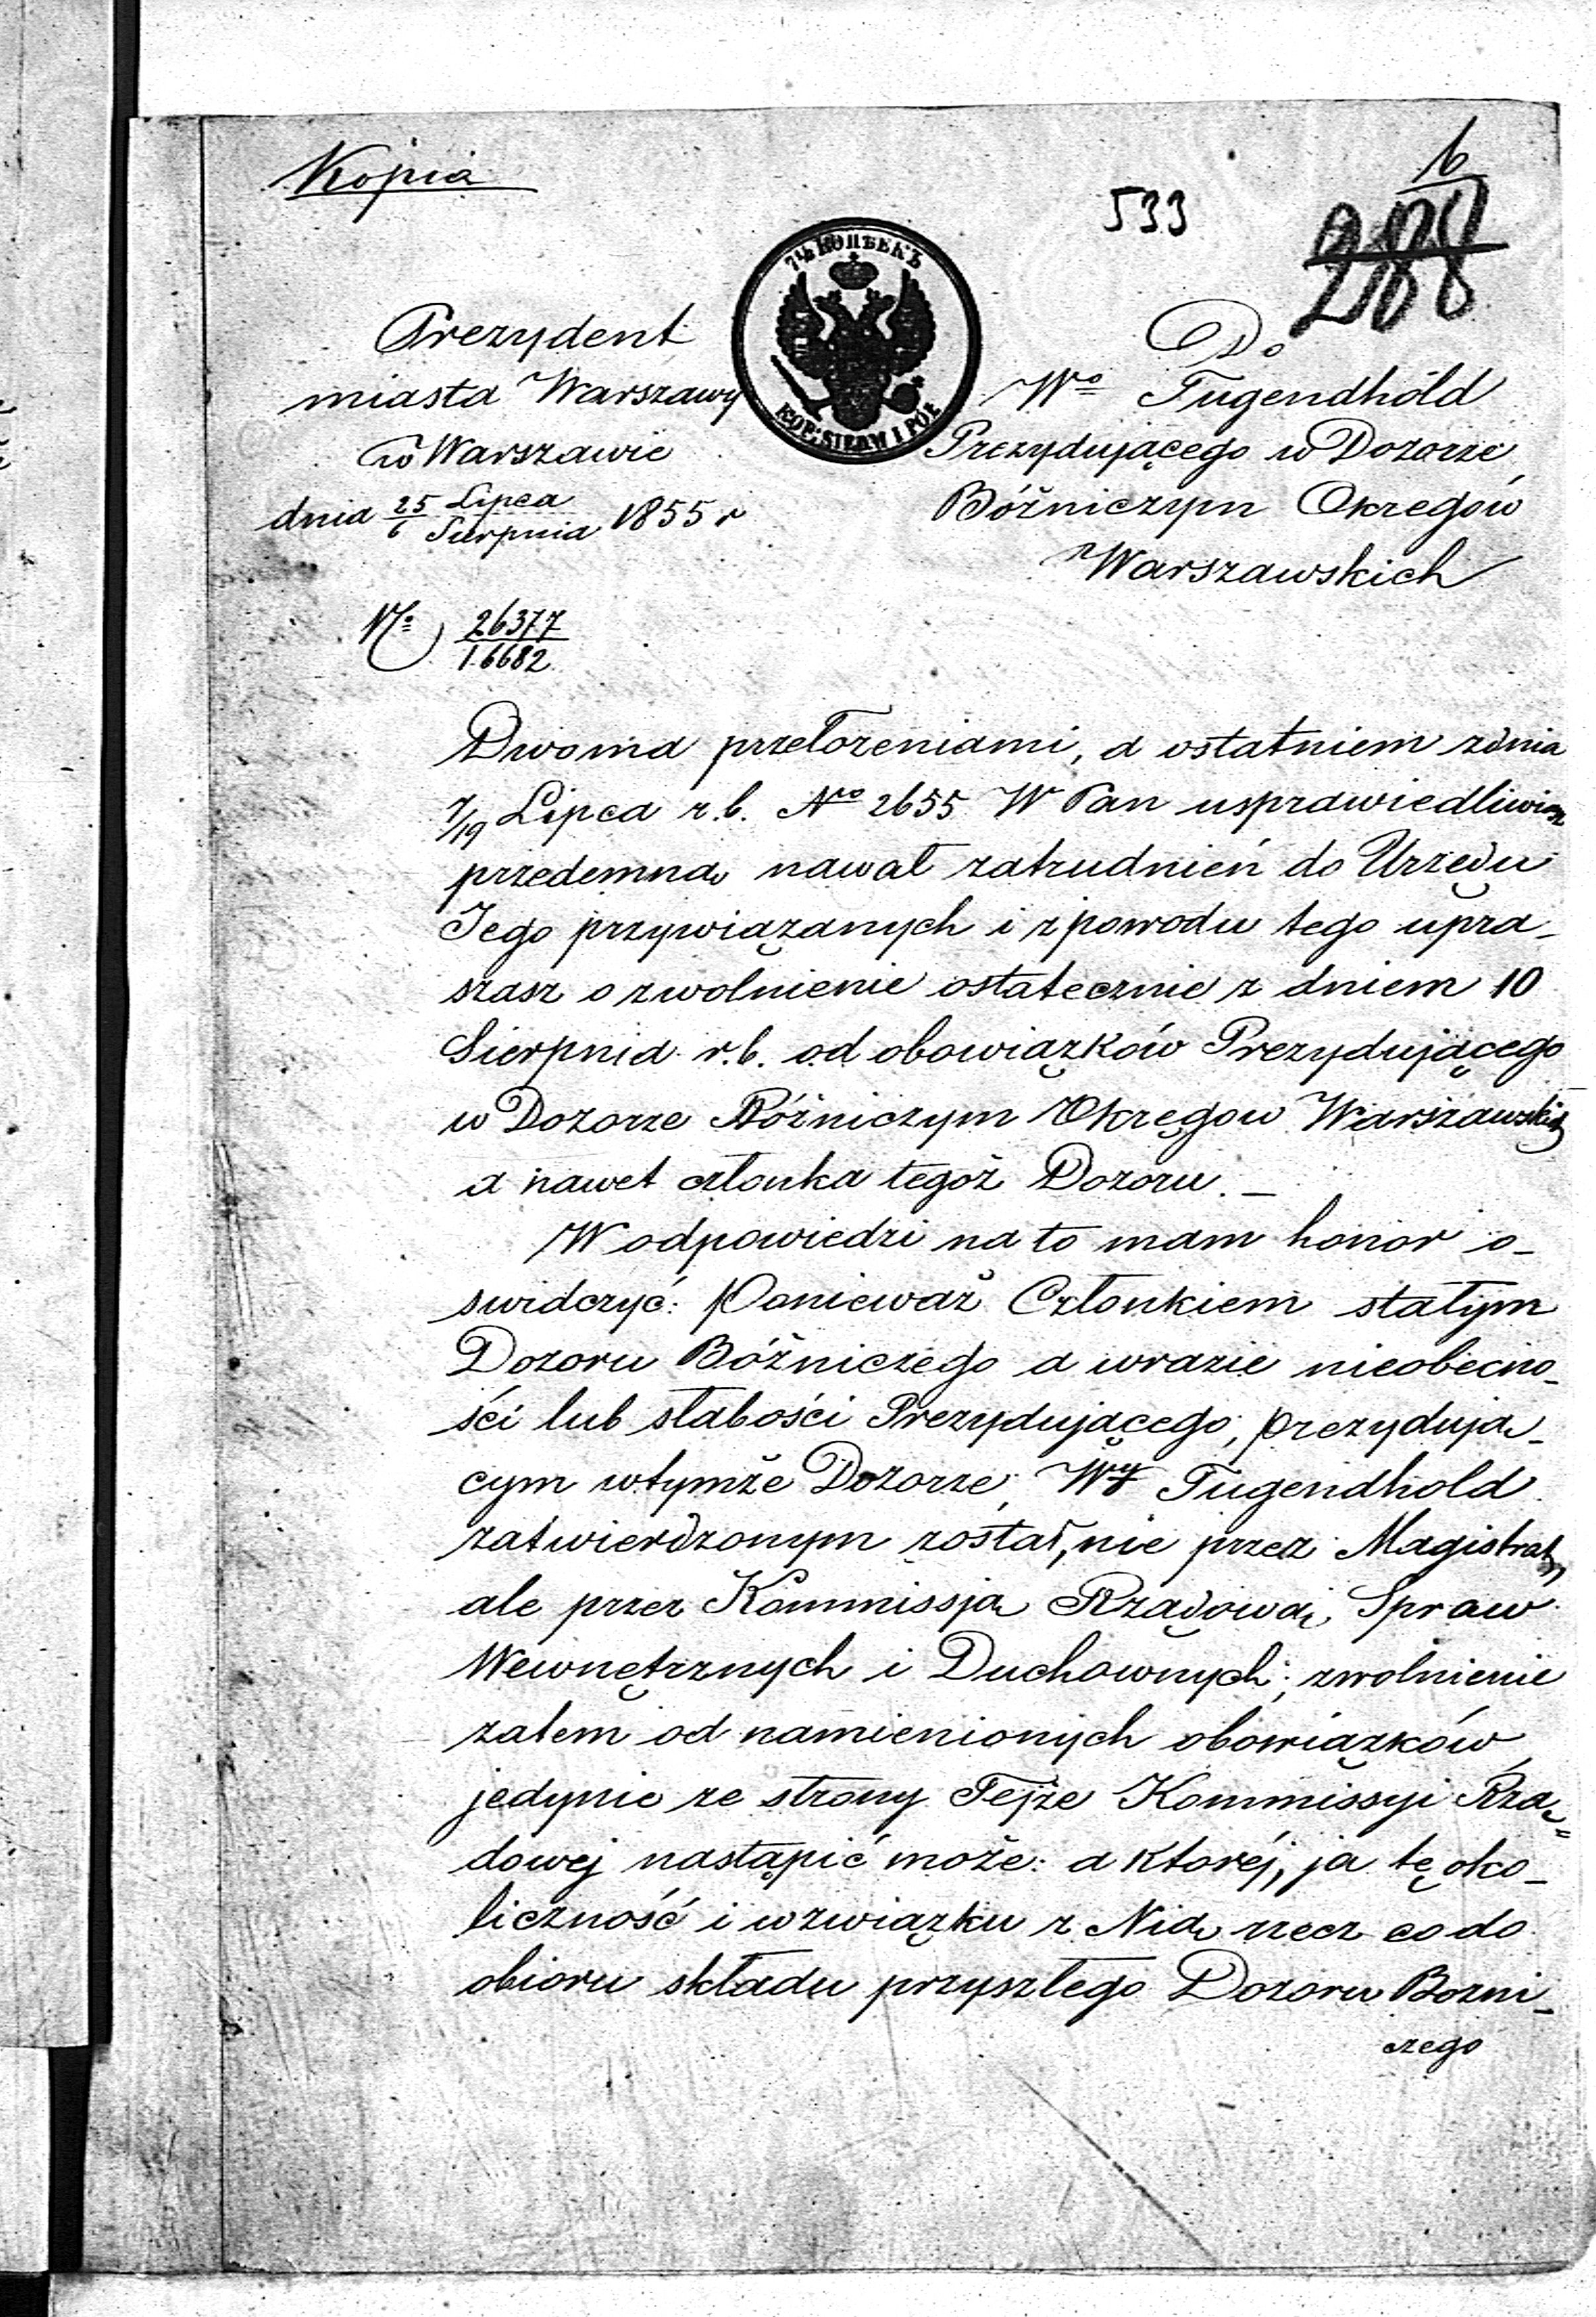 Kopia
533
6
288
7½ КОПѢЕКЪ
Prezydent
miasta Warszawy
w Warszawie
dnia 25/6 Lipca/Sierpnia 1855 r
No 26377/16682
Do
Wo Tugendhold
Prezydującego w Dozorze
Bóżniczym Okregów
Warszawskich
Dwoma przełożeniami, a ostatniem z dnia
7/19 Lipca r.b. No 2655 W Pan usprawiedliwiasz
przedemną nawał zatrudnień do Urzędu
Jego przywiązanych i z powodu tego upra-
szasz o zwolnienie ostatecznie z dniem 10
Sierpnia r.b. od obowiązków Prezydującego
w Dozorze Bóżniczym Okręgow Warszawskich
a nawet członka tegoż Dozoru. —
W odpowiedzi na to mam honor o-
swidczyć: Ponieważ Członkiem stałym
Dozoru Bóżniczego a wrazie nieobecno-
ści lub słabości Prezydującego, prezydują-
cym wtymże Dozorze, Wy Tugendhold
zatwierdzonym został, nie przez Magistrat,
ale przez Kommissją Rządową Spraw
Wewnętrznych i Duchownych; zwolnienie
zatem od namienionych obowiązków
jedynie ze strony Tejże Kommissyi Rzą=
dowej nastąpić może: a ktorej, ja tę oko-
liczność i wzwiązku z Nią rzecz co do
obioru składu przyszłego Dozoru Bozni-
czego